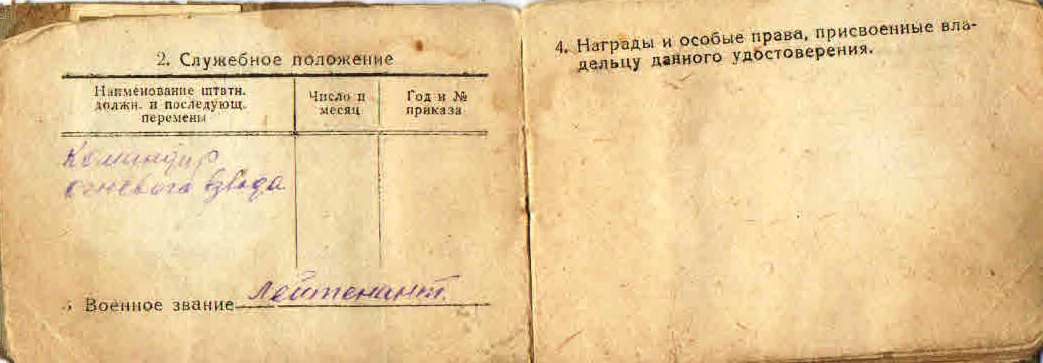 2. Служебное положение
Наименование штатн.
должн. и последующ.
перемены
Число и
месяц
Год и №
приказа
Командир
огневого взвода
Военное звание Лейтенант.
4. Награды и особые права, присвоенные вла-
дельцу данного удостоверения.